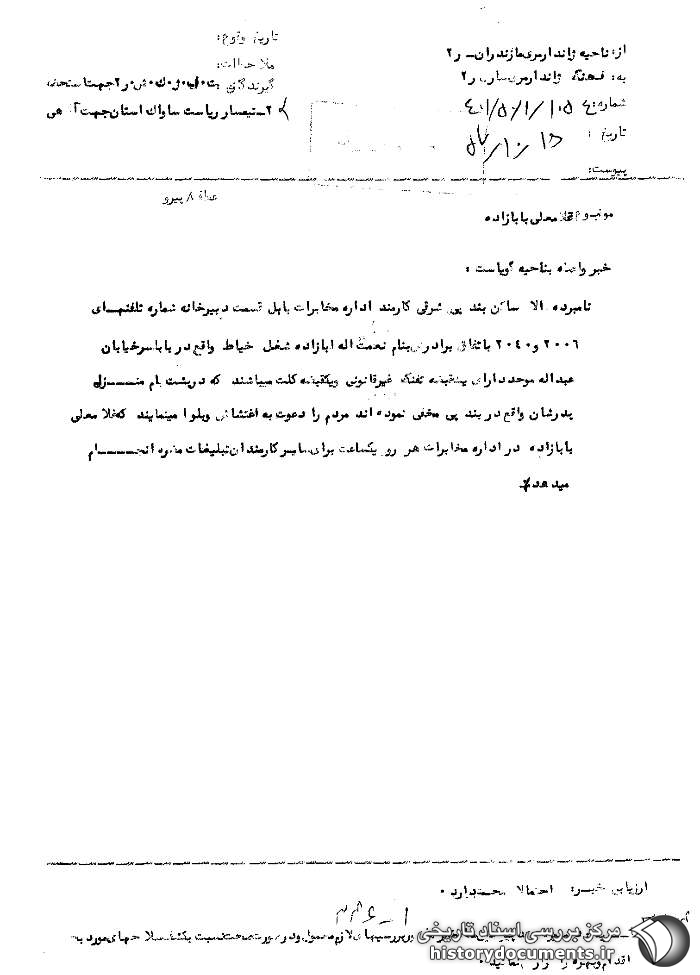 از: ناحیه ژاندارمری مازندران - ر۲
به: فرماندهی ژاندارمری ساری ر۲
شماره: ۴۰۱/۵/۱/۱۰۵
تاریخ: ۵۷/۱۰/۱۵
پیوست:
تاریخ وقوع:
ملاحظات:
گیرندگان
۲- تیمسار ریاست ساواک استان جهت آگاهی
پیرو
موضوع غلامعلی بابازاده
خبر واصله بناحیه گویاست:
نامبرده بالا ساکن بند پی شرقی کارمند اداره مخابرات بابل قسمت دبیرخانه شماره تلفنهای
۲۰۰۶ و ۲۰۴۰ باتفاق برادرش بنام نعمت اله ابازاده شغل خیاط واقع در بابل سرخیابان
عبداله موحد دارای یکقبضه تفنگ غیرقانونی ویکقبضه کلت میباشند که درپشت بام منزل
پدرشان واقع در بند پی مخفی نموده اند مردم را دعوت به اغتشاش وبلوا مینمایند که غلامعلی
بابازاده در اداره مخابرات هر روز یکساعت برای سایر کارمندان تبلیغات مضره انجام
میدهد.
ارزیابی خبر: احتمالا صحت دارد.
بررسیهای لازم معمول ودرصورت صحت نسبت بکشف سلاحهای مورد بحث
اقدام
مرکز بررسی اسناد تاریخی
historydocuments.ir